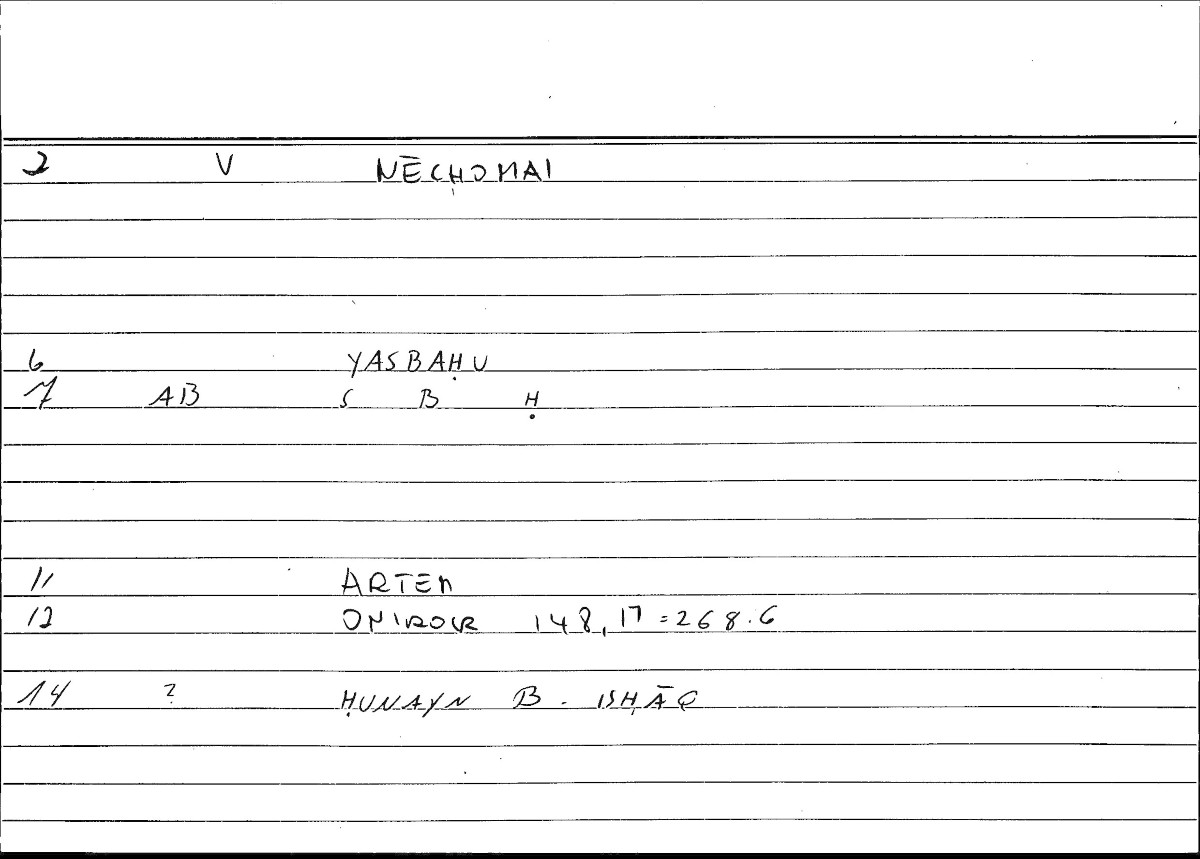 2 V NĒCḤOMAI
6 YASBAḤU
7 AB S B Ḥ
11 ARTEM
12 ONIROCR 148,17=268.6
14 ? ḤUNAYN B. ISḤĀQ